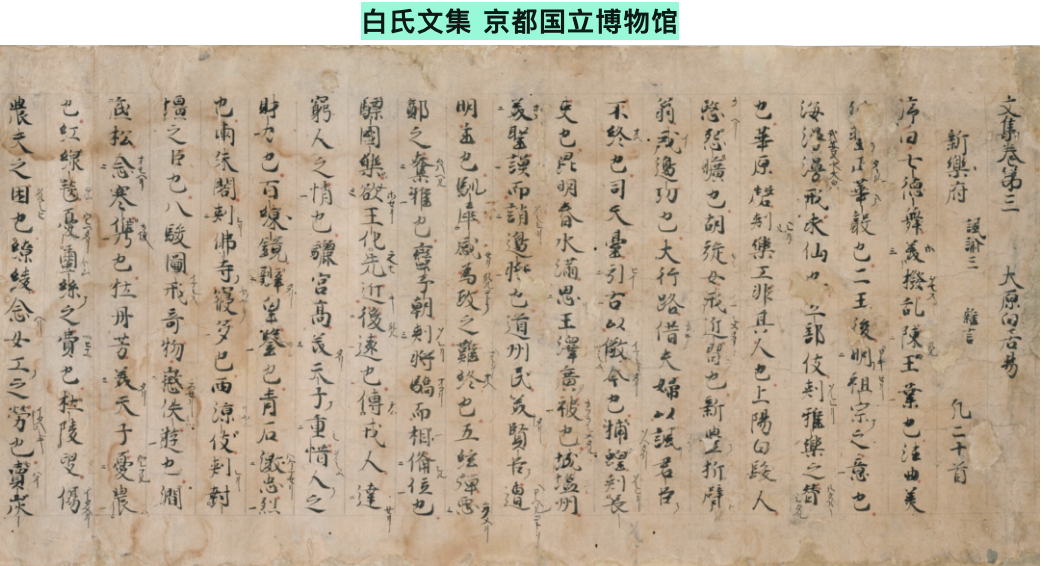 白氏文集 京都国立博物馆
文集卷第三 大原白居易
新樂府 諷諭三 雜言 凡二十首
序曰七德舞美撥乱陳王業也法曲美
列聖正華聲也二王後明祖宗之意也
海漫漫戒求仙也立部伎刺雅樂之替
也華原磬刺樂工非其人也上陽白髮人
愍怨曠也胡旋女戒近習也新豐折臂
翁戒邊功也大行路借夫婦以諷君臣
不終也司天臺引古以儆今也捕蝗刺長
吏也昆明春水滿思王澤廣被也城塩州
美聖謨而誚邊將也道州民美賢臣遭
明主也馴犀感為政之難終也五絃彈惡
鄭之奪雅也蠻子朝刺將驕而相備位也
驃國樂欲王化先近後遠也傳戎人達
窮人之情也驪宮高美天子重惜人之
財力也百鍊鏡辯皇鑒也青石激忠烈
也兩朱閣刺佛寺寖多也西涼伎刺封
壃之臣也八駿圖戒奇物懲佚遊也澗
底松念寒儁也牡丹芳美天子憂農
也紅線毯憂蠶絲之費也杜陵叟傷
農夫之困也繚綾念女工之勞也賣炭